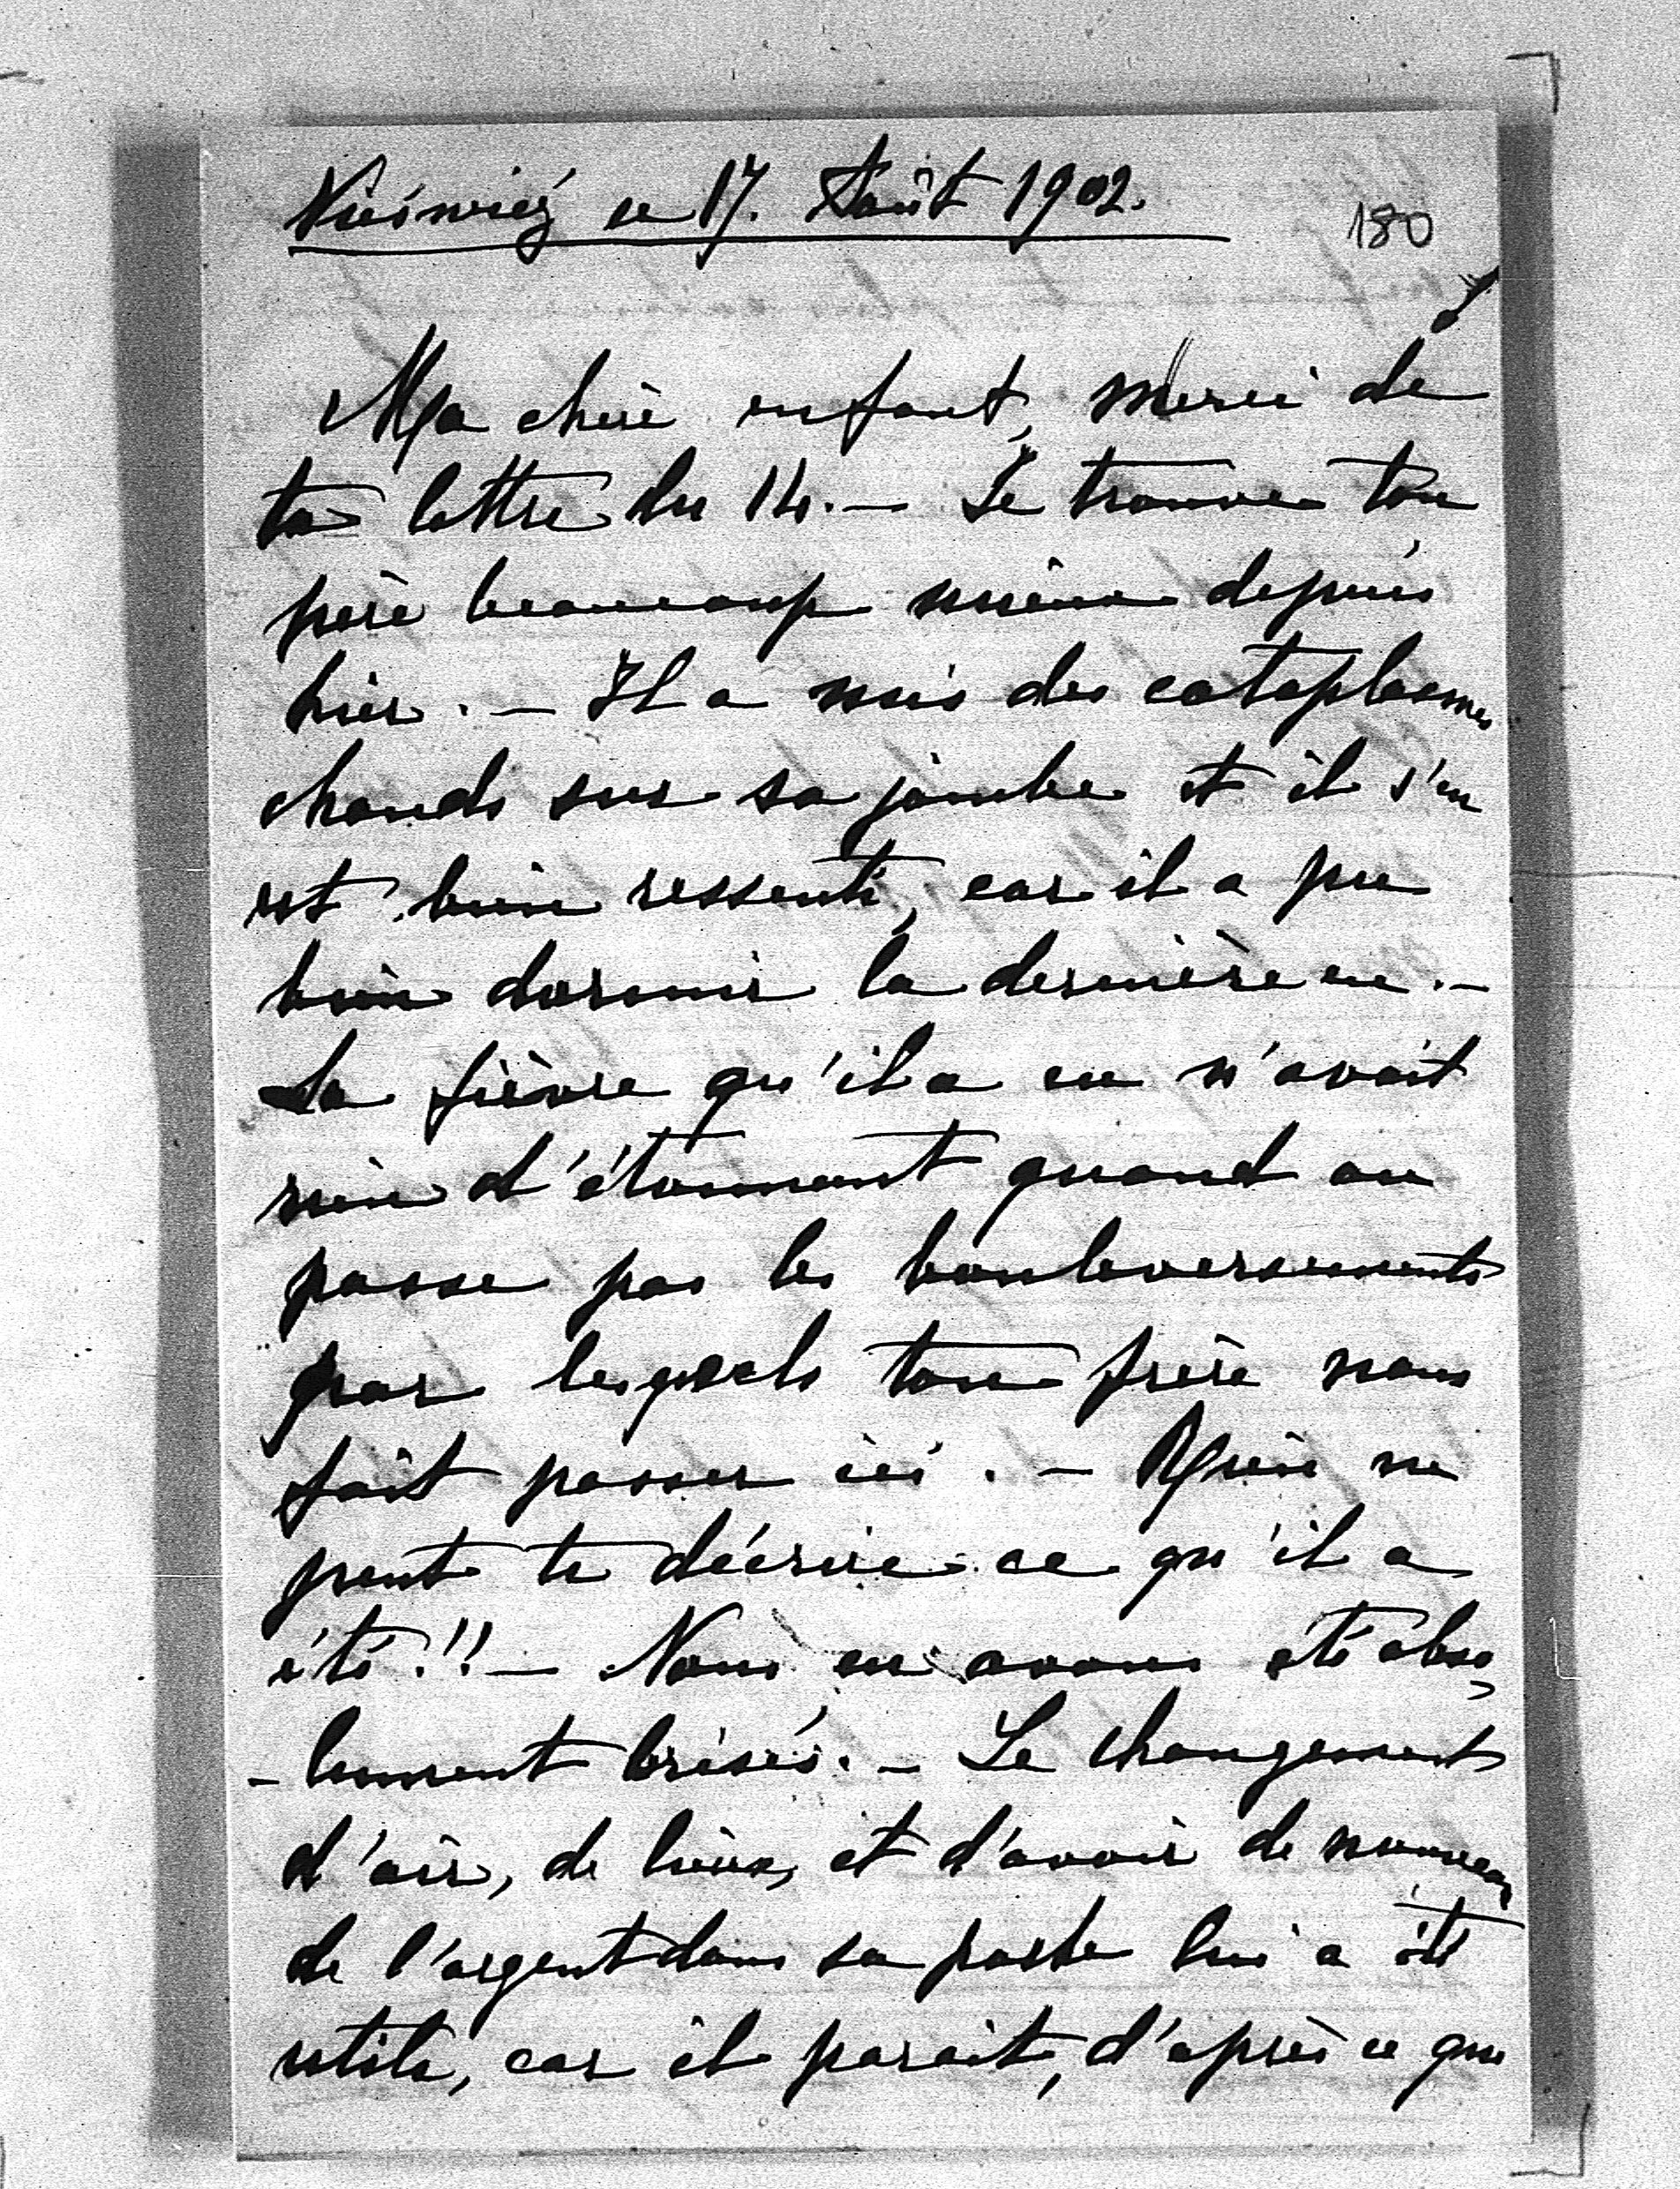 Nieśwież ce 17. Août 1902.
180
Ma chère enfant, merci de
ta lettre du 14. — Je trouve ton
père beaucoup mieux depuis
hier. — Il a mis des cataplasmes
chauds sur sa jambe et il s'en
est bien ressenti, car il a pu
bien dormir la dernière nuit. —
La fièvre qu'il a eu n'avait
rien d'étonnant quand on
passe par les bouleversements
par lesquels ton frère nous
fait passer ici. — Rien ne
peut te décrire ce qu'il a
été!! — Nous en avons été abso
- lument brisés. — Le changement
d'air, de lieux, et d'avoir de nouveau
de l'argent dans sa poche lui a été
utile, car il parait, d'après ce que